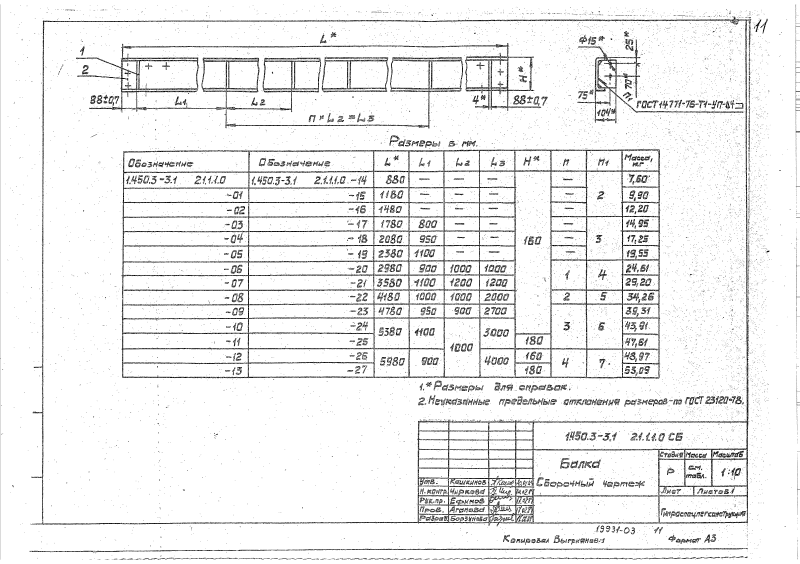 11
L*
Ф15*
25*
1
2
H*
70*
88±0,7
L1
L2
4*
88±0,7
75*
П1
104*
ГОСТ 14771-76-Т1-УП-
n × L2 = L3
Размеры в мм.
Обозначение Обозначение L* L1 L2 L3 H* n n1 Масса, кг
1.450.3-3.1 2.1.1.1.0 1.450.3-3.1 2.1.1.1.0 -14 880 — — — 160 — 2 7,60
-01 -15 1180 — — — — 9,90
-02 -16 1480 — — — — 12,20
-03 -17 1780 800 — — — 3 14,95
-04 -18 2080 950 — — — 17,25
-05 -19 2380 1100 — — — 19,55
-06 -20 2980 900 1000 1000 1 4 24,61
-07 -21 3580 1100 1200 1200 29,20
-08 -22 4180 1000 1000 2000 2 5 34,26
-09 -23 4780 950 900 2700 3 6 39,31
-10 -24 5380 1100 1000 3000 43,91
-11 -25 180 47,61
-12 -26 5980 900 4000 160 4 7 48,97
-13 -27 180 53,09
1.* Размеры для справок.
2. Неуказанные предельные отклонения размеров - по ГОСТ 23120-78.
1.450.3-3.1 2.1.1.1.0 СБ
Балка
Сборочный чертеж
Стадия Масса Масштаб
Р см. табл. 1:10
Лист Листов 1
Гипроспецлегконструкция
Утв. Кашкинов
Н.контр. Чиркова
Рук.пр. Ефимов
Пров. Агапова
Разраб. Борзунова
19931-03 11
Копировал Формат А3